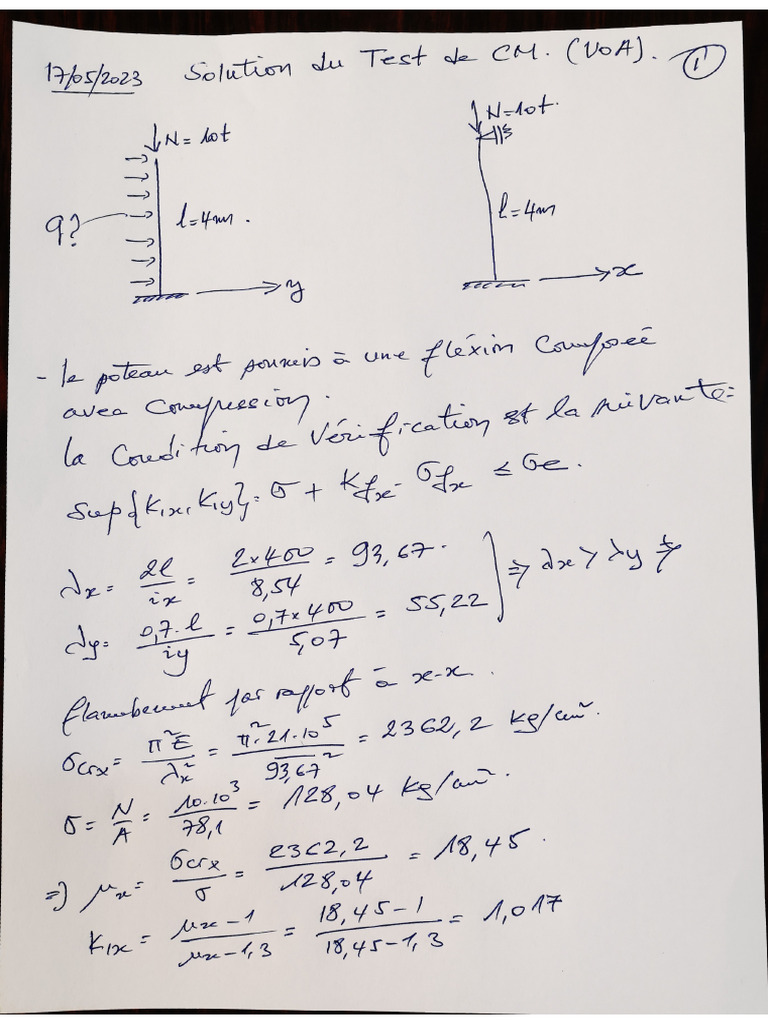 17/05/2023 Solution du Test de CM. (VOA). 1
N = 10t
N = 10t.
q?
l = 4m.
l = 4m
y
x
- le poteau est soumis à une fléxion Composée
avec Compression.
la Condition de Vérification est la suivante:
Sup{K1x, K1y}. σ + Kfx. σfx ≤ σe.
λx = 2l/ix = 2×400/8,54 = 93,67.
⇒ λx > λy ⇒
λy = 0,7.l/iy = 0,7×400/5,07 = 55,22
flambement par rapport à x-x.
σcrx = π²E/λx² = π².21.10⁵/93,67² = 2362,2 kg/cm².
σ = N/A = 10.10³/78,1 = 128,04 kg/cm².
⇒ μx = σcrx/σ = 2362,2/128,04 = 18,45.
K1x = μx-1/μx-1,3 = 18,45-1/18,45-1,3 = 1,017